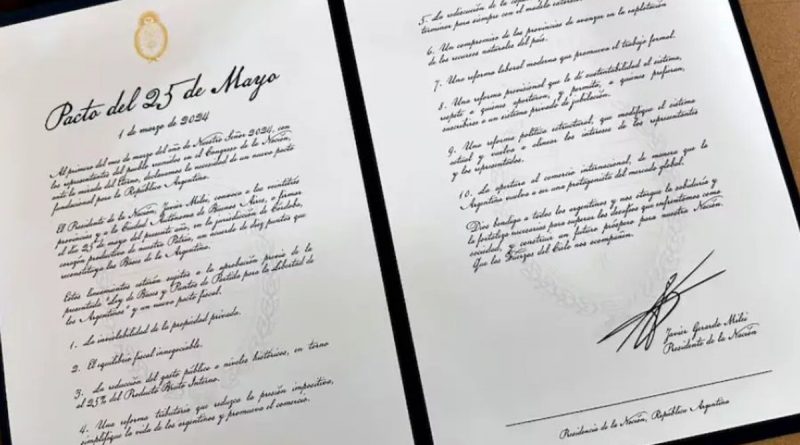 Pacto del 25 de Mayo
1 de marzo de 2024
Al primero del mes de marzo del año de Nuestro Señor 2024, con
los representantes del pueblo reunidos en el Congreso de la Nación,
ante la mirada del Eterno, declaramos la necesidad de un nuevo pacto
fundacional para la República Argentina.
El Presidente de la Nación, Javier Milei, convoca a las veintitrés
provincias y a la Ciudad Autónoma de Buenos Aires, a firmar
el día 25 de mayo del presente año, en la jurisdicción de Córdoba,
corazón productivo de nuestra Patria, un acuerdo de diez puntos que
reconstituya las Bases de la Argentina.
Estos lineamientos estarán sujetos a la aprobación previa de la
presentada "Ley de Bases y Puntos de Partida para la Libertad de
los Argentinos" y un nuevo pacto fiscal.
1. La inviolabilidad de la propiedad privada.
2. El equilibrio fiscal innegociable.
3. La reducción del gasto público a niveles históricos, en torno
al 25% del Producto Bruto Interno.
4. Una reforma tributaria que reduzca la presión impositiva,
simplifique la vida de los argentinos y promueva el comercio.
5. La rediscusión de la
terminar para siempre con el modelo
6. Un compromiso de las provincias de avanzar en la explotación
de los recursos naturales del país.
7. Una reforma laboral moderna que promueva el trabajo formal.
8. Una reforma previsional que le dé sustentabilidad al sistema,
respete a quienes aportaron, y permita, a quienes prefieran,
suscribirse a un sistema privado de jubilación.
9. Una reforma política estructural, que modifique el sistema
actual y vuelva a alinear los intereses de los representantes
y los representados.
10. La apertura al comercio internacional, de manera que la
Argentina vuelva a ser una protagonista del mercado global.
Dios bendiga a todos los argentinos y nos otorgue la sabiduría y
la fortaleza necesarias para superar los desafíos que enfrentamos como
sociedad, y construir un futuro próspero para nuestra Nación.
Que las Fuerzas del Cielo nos acompañen.
Javier Gerardo Milei
Presidente de la Nación
Presidencia de la Nación, República Argentina